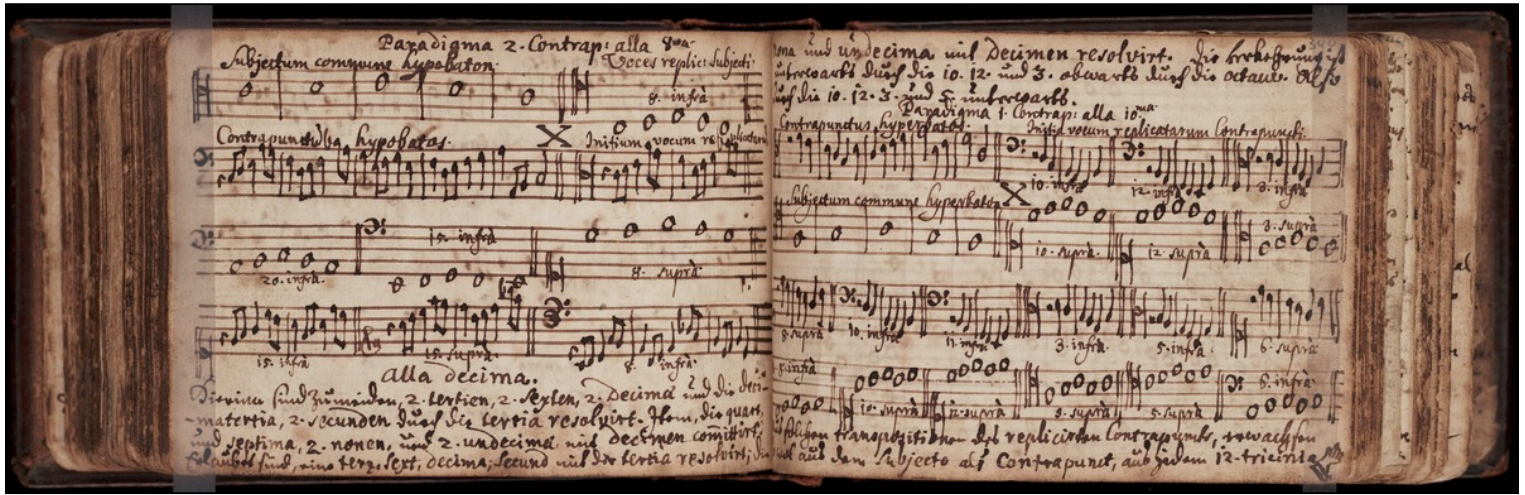 Paradigma 2. Contrap: alla 8va.
Subjectum commune hypobaton.
Voces replic: Subjecti.
8. infrà
Contrapunctus hypobatos.
X
Initium vocum
15. infrà
20. infrà.
8. suprà.
15. infrà
15. suprà.
8. infrà.
alla decima.
Hierinne sind zu meiden, 2. tertien, 2. Sexten, 2. Decimâ und die deci-
-matertia, 2. secunden durch die tertia resolvirt. Item, die quart,
und septima, 2. nonen, und 2. undecimæ mit decimen
Erlaubet sind, eine terz, sext, decima, secund mit der tertia resolvirt,
und undecima mit Decimen resolvirt. Die Verkehrung ist
unterwarts durch die 10. 12. und 3. obwarts durch die octave. Also
durch die 10. 12. 3. und 5. unterwarts.
Paradigma 1. Contrap: alla 10ma.
Contrapunctus hyperbatos.
Initia vocum replicatarum Contrapuncti.
10. infrà
12. infrà
3. infrà
Subjectum commune hyperbaton
X
10. suprà.
12. suprà
3. suprà
8. suprà
10. infrà
12. infrà
3. infrà.
5. infrà.
6. suprà
8. infrà
10. suprà
12. suprà
3. suprà
5. suprà
6. infrà.
transpositionen des replicirten Contrapuncts, erwachsen
aus dem Subjecto als Contrapunct, aus jedem 12. tricinia